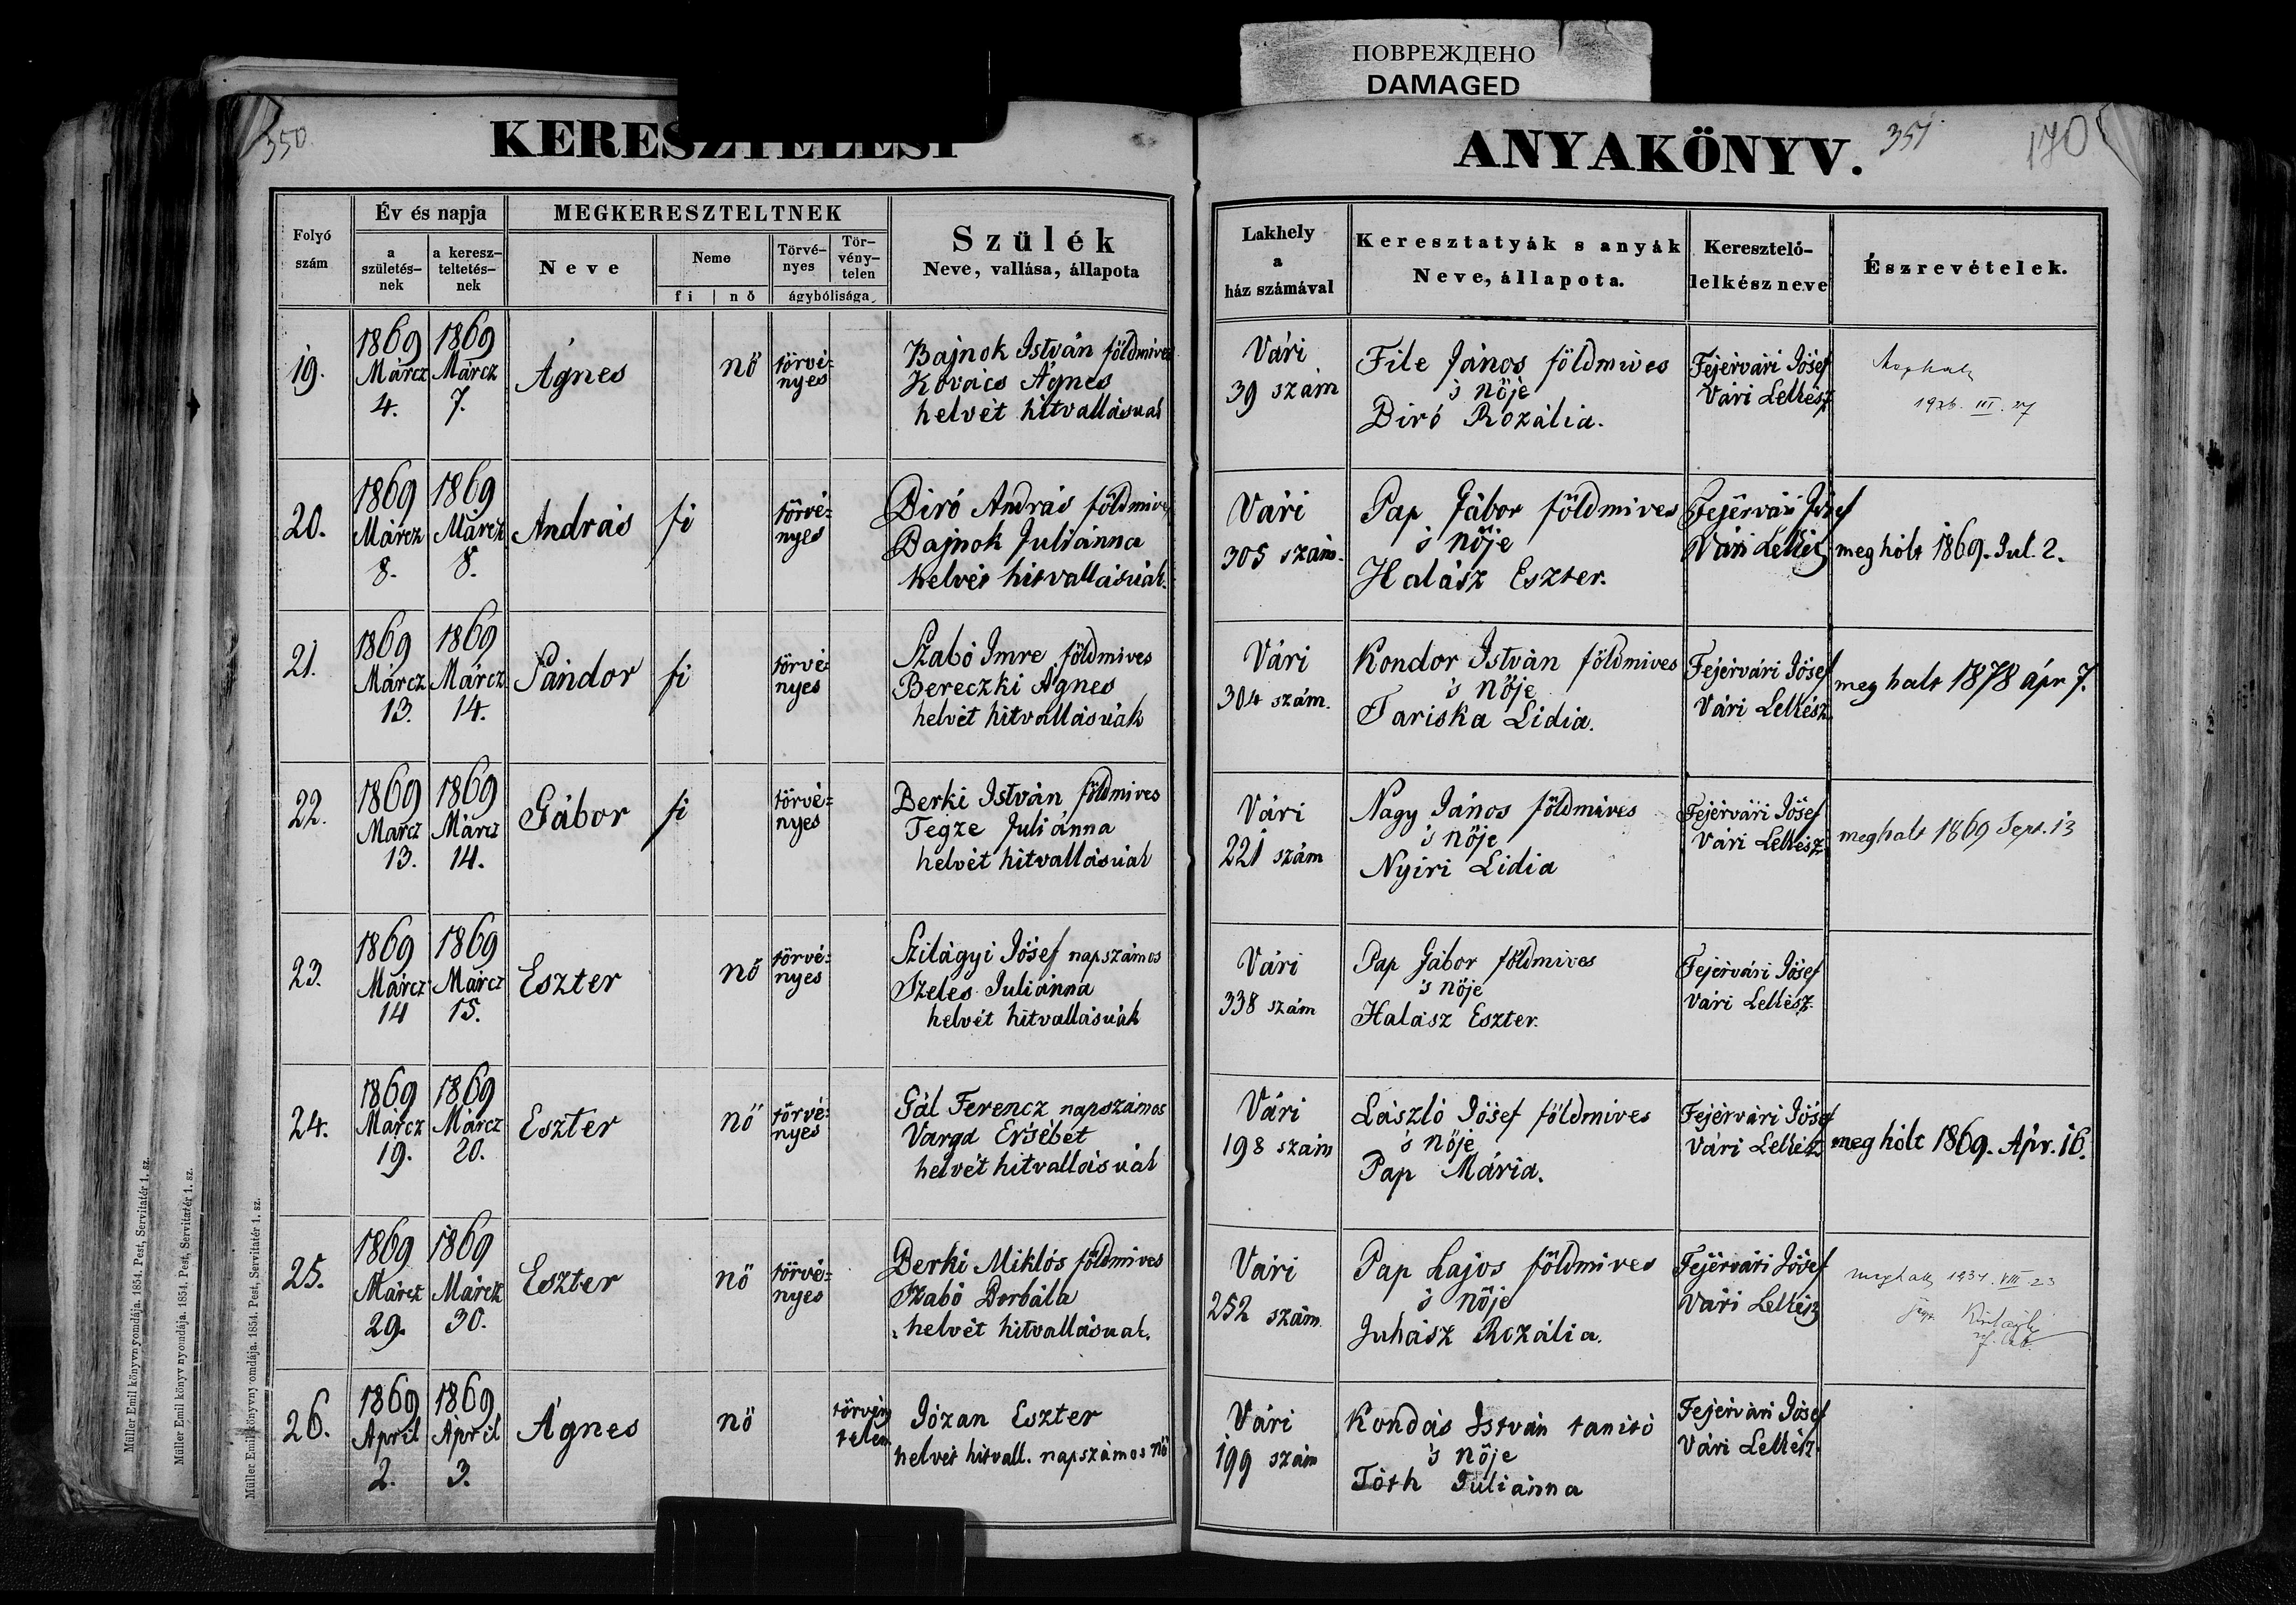 ПОВРЕЖДЕНО
DAMAGED
350.
KERESZTELÉSI
ANYAKÖNYV.
351
170
Folyó szám
Év és napja
a születés-nek
a keresz-teltetés-nek
MEGKERESZTELTNEK
Neve
Neme
fi
nő
Törvé-nyes
Tör-vény-telen
ágybólisága
Szülék
Neve, vallása, állapota
Lakhely
a
ház számával
Keresztatyák s anyák
Neve, állapota.
Keresztelő-
lelkész neve
Észrevételek.
19.
1869 Márcz 4.
1869 Márcz 7.
Ágnes
nő
törvé-
nyes
Bajnok István földmives
Kovács Ágnes
helvét hitvallásuak
Vári
39 szám
File János földmives
's nője
Biró Rozália.
Fejérvári Jósef
Vári Lelkész
Meghalt
1926. III. 27
20.
1869 Márcz 8.
1869 Márcz 8.
András
fi
törvé-
nyes
Biró András földmives
Bajnok Juliánna
helvét hitvallásúak.
Vári
305 szám.
Pap Gábor földmives
's nője
Halász Eszter.
Fejérvári Jósef
Vári Lelkész
meghólt 1869. Jul. 2.
21.
1869 Márcz 13.
1869 Márcz 14.
Sándor
fi
törvé-
nyes
Szabó Imre földmives
Bereczki Ágnes
helvét hitvallásúak
Vári
304 szám.
Kondor István földmives
's nője
Tariska Lidia.
Fejérvári Jósef
Vári Lelkész
meghalt 1878 ápr 7.
22.
1869 Marcz 13.
1869 Márcz 14.
Gábor
fi
törvé-
nyes
Berki István földmives
Tegze Juliánna
helvét hitvallásúak
Vári
221 szám
Nagy János földmives
's nője
Nyiri Lidia
Fejérvári Jósef
Vári Lelkész
meghalt 1869 Sept. 13
23.
1869 Márcz 14
1869 Márcz 15.
Eszter
nő
törvé-
nyes
Szilágyi Jósef napszámos
Szeles Juliánna
helvét hitvallásúak
Vári
338 szám
Pap Gábor földmives
's nője
Halász Eszter.
Fejérvári Jósef
Vári Lelkész.
24.
1869 Márcz 19.
1869 Márcz 20.
Eszter
nő
törvé-
nyes
Gál Ferencz napszámos
Varga Ersébet
helvét hitvallásúak
Vári
198 szám
László Jósef földmives
's nője
Pap Mária.
Fejérvári Jósef
Vári Lelkész
meghólt 1869. Ápr. 16.
25.
1869 Márcz 29.
1869 Márcz 30.
Eszter
nő
törvé-
nyes
Berki Miklós földmives
Szabó Borbála
helvét hitvallásuak.
Vári
252 szám.
Pap Lajos földmives
's nője
Juhász Rozália.
Fejérvári Jósef
Vári Lelkész
meghalt 1934. VIII. 23
26.
1869 April 2.
1869 April 3.
Ágnes
nő
törvény
telen
Józan Eszter
helvét hitvall. napszámos nő
Vári
199 szám
Kondás István tanitó
's nője
Tóth Juliánna
Fejérvári Jósef
Vári Lelkész
Müller Emil könyvnyomdája. 1854. Pest, Servitatér 1. sz.
Müller Emil könyv nyomdája. 1854. Pest, Servitatér 1. sz.
Müller Emil könyvnyomdája. 1854. Pest, Servitatér 1. sz.